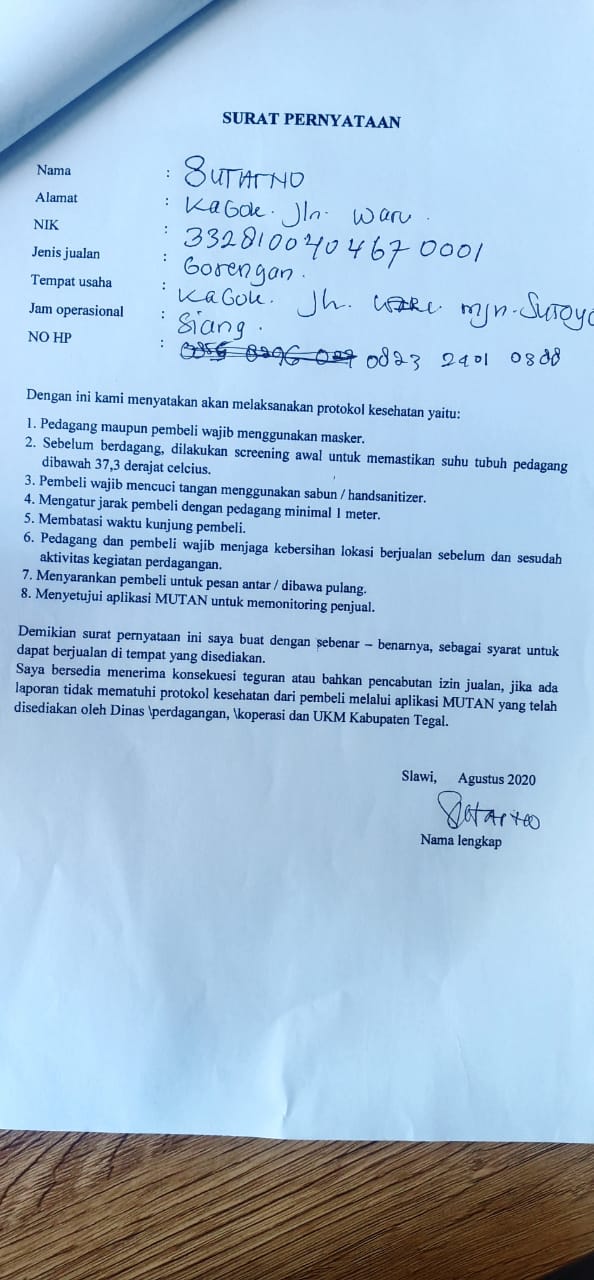 SURAT PERNYATAAN
Nama : SUTARNO
Alamat : KaGok. Jln. Waru.
NIK : 3328100404670001
Jenis jualan : Gorengan.
Tempat usaha : KaGok. Jln. mjn. Suroyo
Jam operasional : Siang.
NO HP : 0823 2401 0388
Dengan ini kami menyatakan akan melaksanakan protokol kesehatan yaitu:
1. Pedagang maupun pembeli wajib menggunakan masker.
2. Sebelum berdagang, dilakukan screening awal untuk memastikan suhu tubuh pedagang
dibawah 37,3 derajat celcius.
3. Pembeli wajib mencuci tangan menggunakan sabun / handsanitizer.
4. Mengatur jarak pembeli dengan pedagang minimal 1 meter.
5. Membatasi waktu kunjung pembeli.
6. Pedagang dan pembeli wajib menjaga kebersihan lokasi berjualan sebelum dan sesudah
aktivitas kegiatan perdagangan.
7. Menyarankan pembeli untuk pesan antar / dibawa pulang.
8. Menyetujui aplikasi MUTAN untuk memonitoring penjual.
Demikian surat pernyataan ini saya buat dengan sebenar – benarnya, sebagai syarat untuk
dapat berjualan di tempat yang disediakan.
Saya bersedia menerima konsekuesi teguran atau bahkan pencabutan izin jualan, jika ada
laporan tidak mematuhi protokol kesehatan dari pembeli melalui aplikasi MUTAN yang telah
disediakan oleh Dinas \perdagangan, \koperasi dan UKM Kabupaten Tegal.
Slawi, Agustus 2020
Nama lengkap